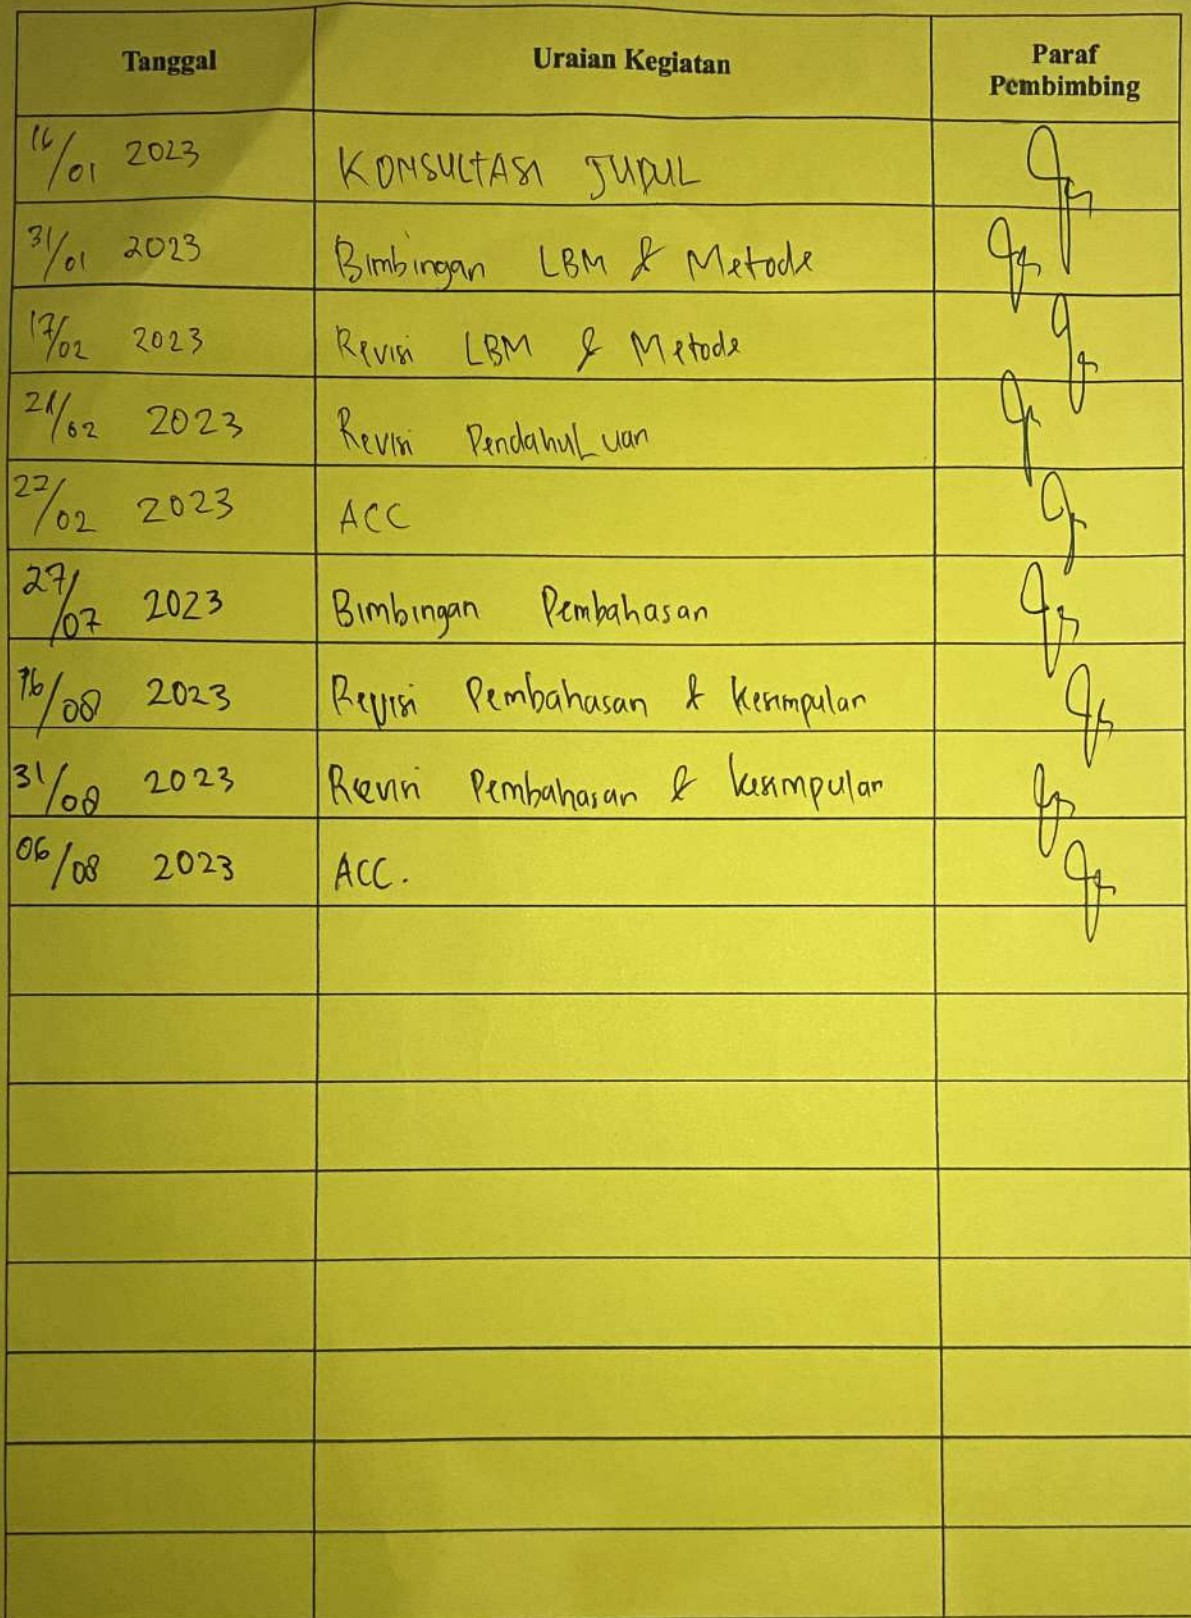 Tanggal Uraian Kegiatan Paraf Pembimbing
16/01 2023 KONSULTASI JUDUL
31/01 2023 Bimbingan LBM & Metode
17/02 2023 Revisi LBM & Metode
21/02 2023 Revisi Pendahuluan
22/02 2023 ACC
27/07 2023 Bimbingan Pembahasan
16/08 2023 Revisi Pembahasan & Kesimpulan
31/08 2023 Revisi Pembahasan & Kesimpulan
06/08 2023 ACC.